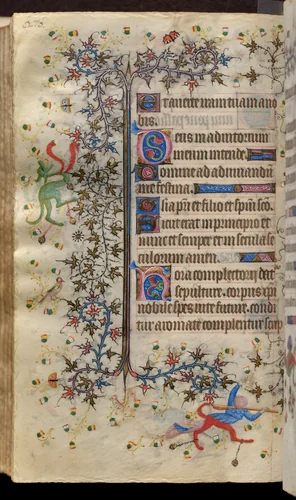 Et averte iram tuam a no
bis.
Deus in adiutorium
meum intende.
Domine ad adiuvandum
me festina.
Glia pri et filio et spui sco.
Sicut erat in principio et
nunc et semper et in secula se
culorum amen.
Hora completorij dat
sepulture. corpus xpi
nobile spes vite future. condi
tur aromate complentur scrip